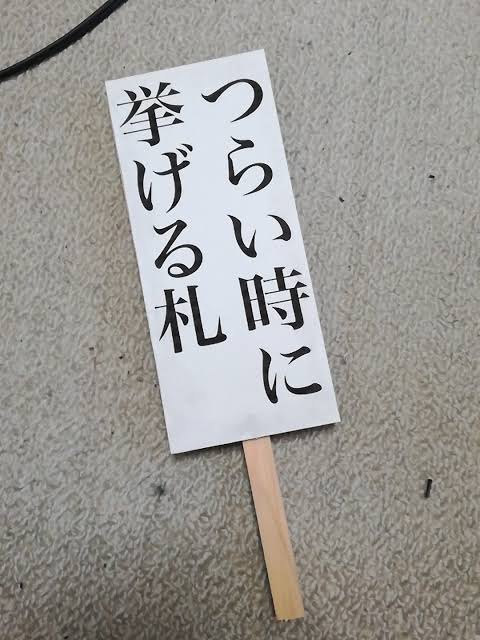 つらい時に
挙げる札